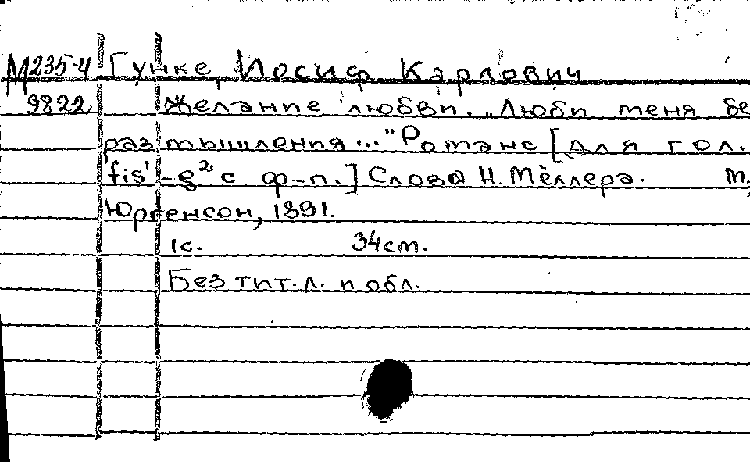 М235-4 Гунке, Иосиф Карлович
9822 Желание любви. „Люби меня бе
размышления..." Романс [для гол.
fis¹-g² с ф-п.] Слова Н. Мёллера. М,
Юргенсон, 1891.
1с. 34см.
Без тит. л. и обл.